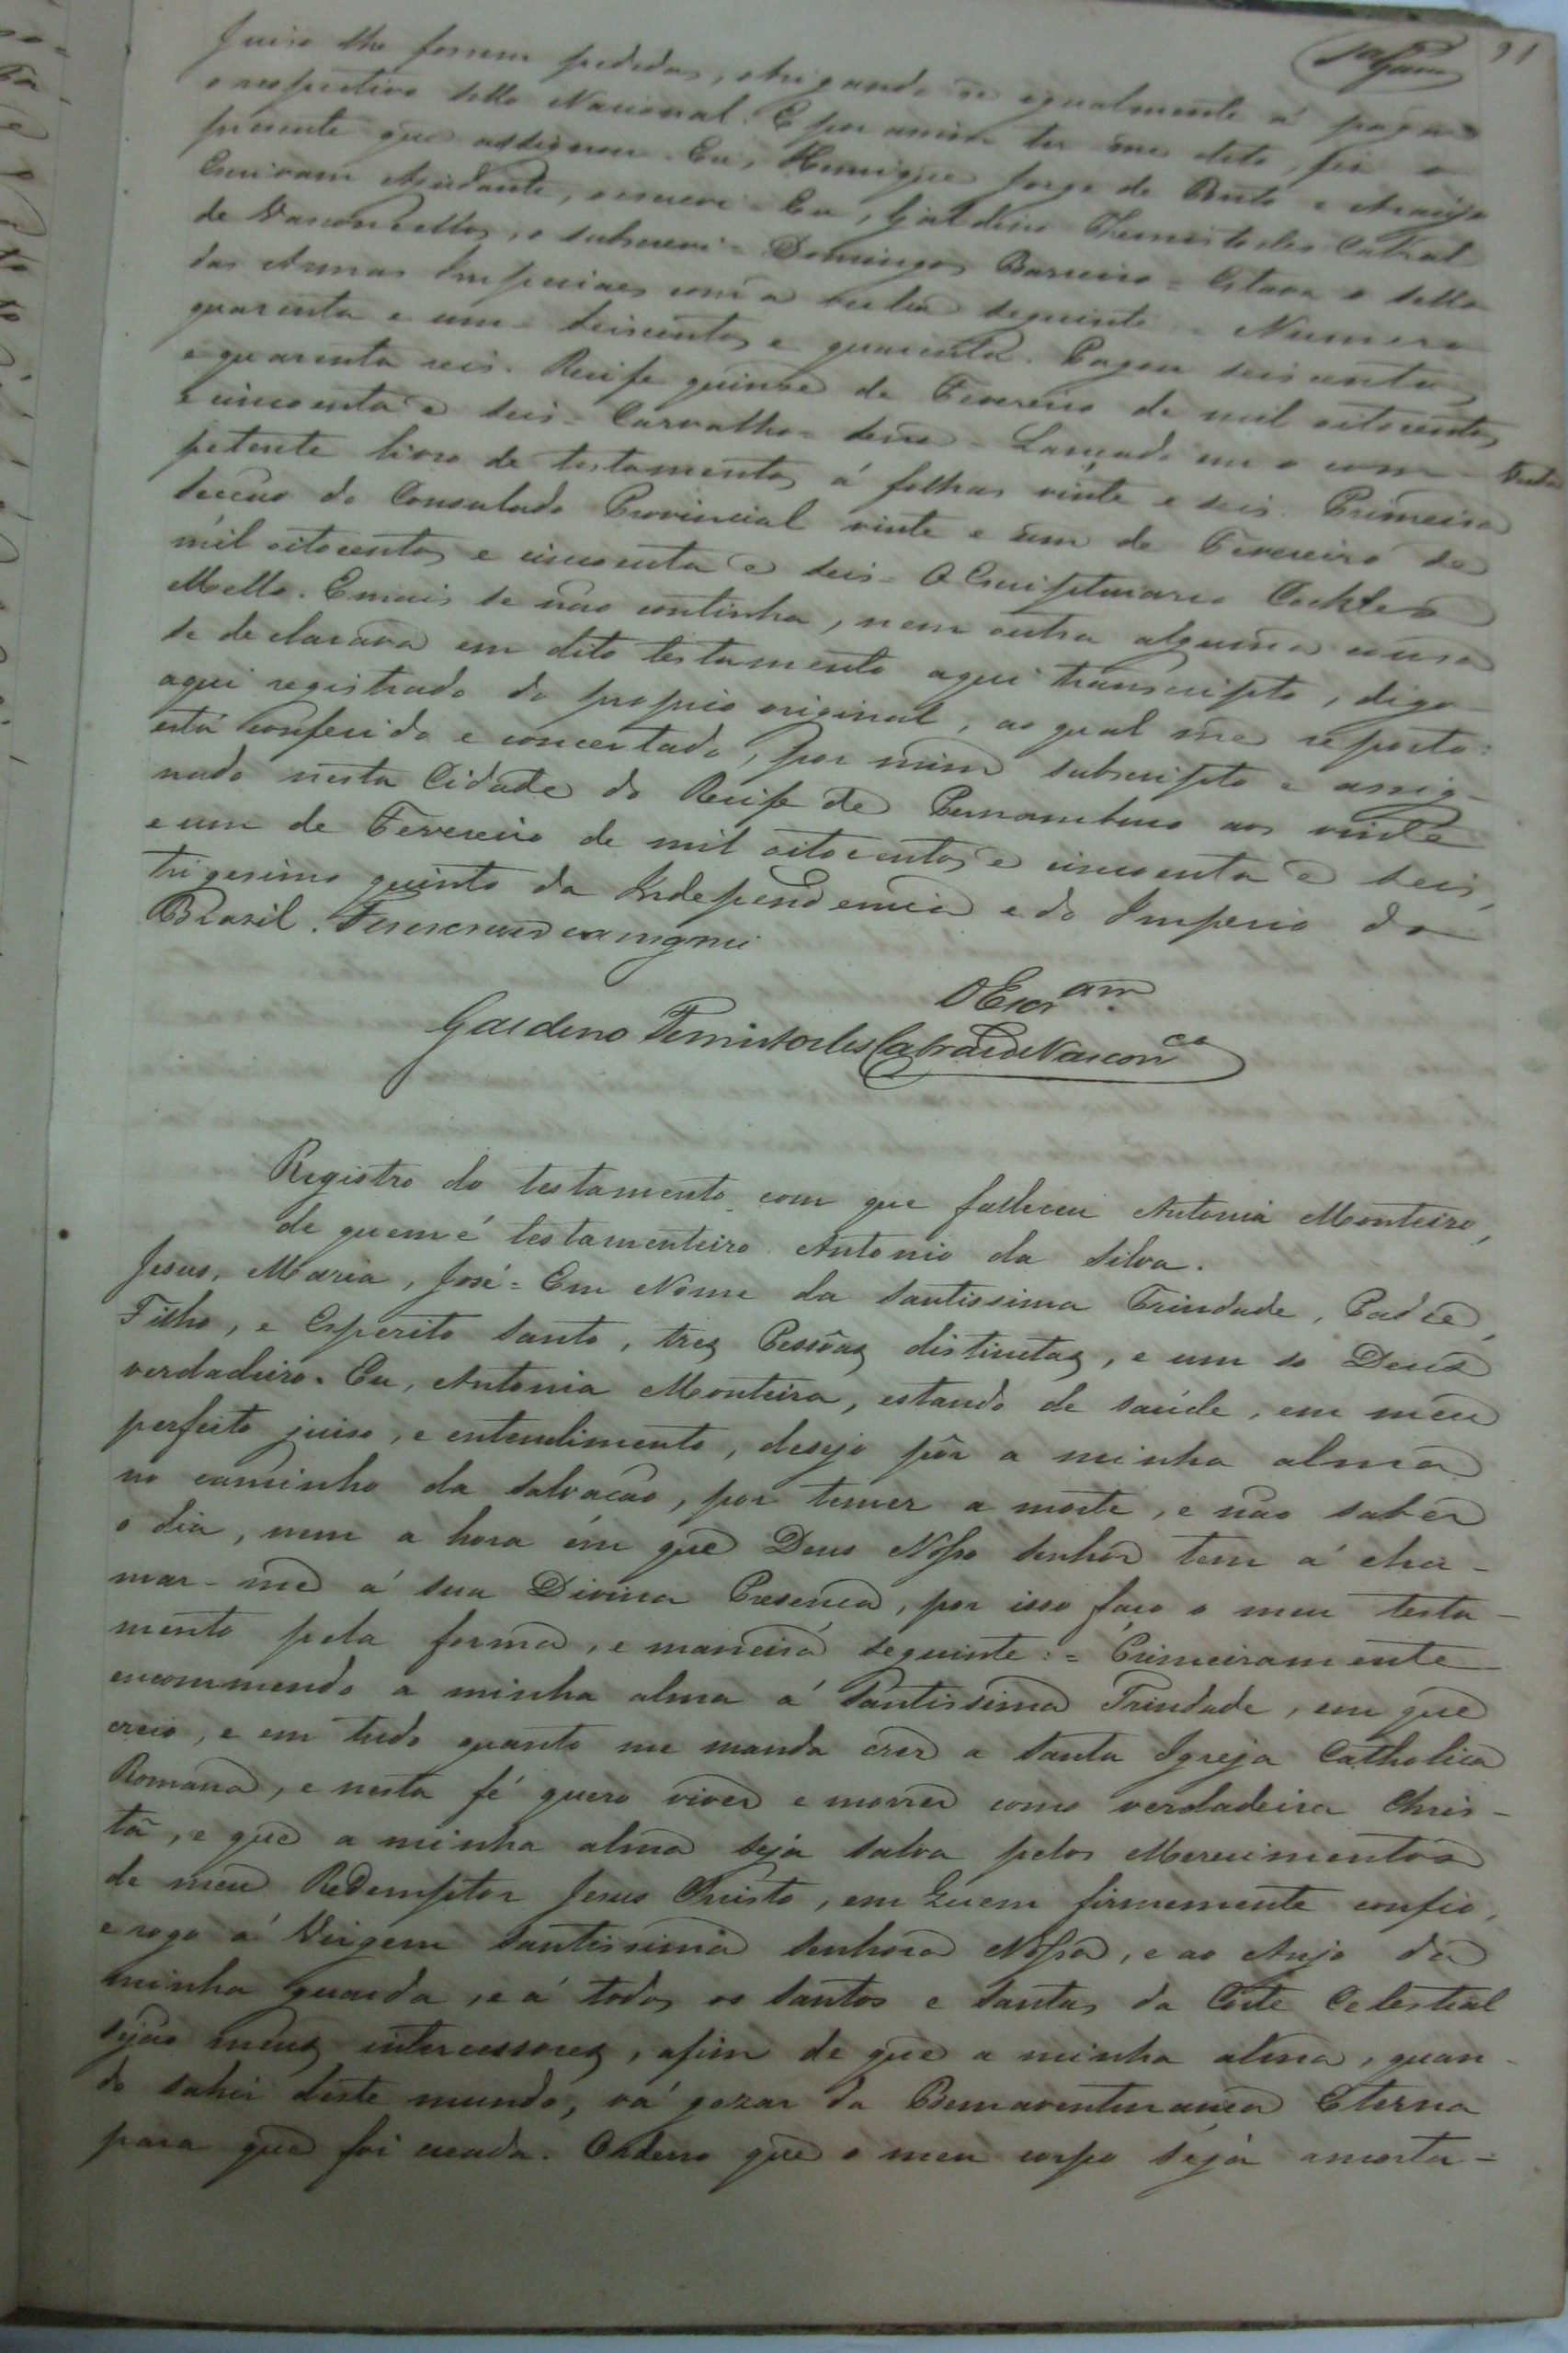 91
Juiso lhe forem pedidas, obrigando-se igualmente á pagar
o respectivo sello Nacional. E por assim ter me dito, fiz o
presente que assignou. Eu, Henrique Jorge de Brito e Araujo
Escrivam Ajudante, escrevi = Eu, Galdino Themistocles Cabral
de Vasconcellos, o subscrevi = Domingos Barreiro = Estava o sello
das Armas Imperiaes com a verba seguinte = Numero
quarenta e um = seiscentos e quarenta. Pagou seiscentos
e quarenta reis. Recife quinse de Fevereiro de mil oitocentos
e cincoenta e seis = Carvalho = Sena = Lançado em o com-
petente livro de testamentos á folhas vinte e seis. Primeira
Secção do Consulado Provincial vinte e um de Fevereiro de
mil oitocentos e cincoenta e seis = O Escripturario Cockles
Mello. E mais se não continha, nem outra alguma cousa
se declarava em dito testamento aqui transcripto, digo
aqui registrado do proprio original, ao qual me reporto:
está conferido e concertado, por mim subscripto e assig-
nado nesta Cidade do Recife de Pernambuco aos vinte
e um de Fevereiro de mil oitocentos e cincoenta e seis,
trigesimo quinto da Independencia e do Imperio do
Brazil.
O Escr.am
Galdino Temistocles Cabral de Vascon.co
Registro do testamento com que falleceu Antonia Monteiro,
de quem é testamenteiro Antonio da Silva.
Jesus, Maria, José = Em Nome da Santissima Trindade, Padre,
Filho, e Esperito Santo, tres Pessôas distinctas, e um só Deus
verdadeiro. Eu, Antonia Monteira, estando de saúde, em meu
perfeito juiso, e entendimento, desejo pôr a minha alma
no caminho da salvacão, por temer a morte, e não saber
o dia, nem a hora em que Deus Nosso Senhor tem á cha-
mar-me á sua Divina Presença, por isso faço o meu testa-
mento pela forma, e maneira seguinte: = Primeiramente
encommendo a minha alma á Santissima Trindade, em que
creio, e em tudo quanto me manda crer a Santa Igreja Catholica
Romana, e nesta fé quero viver e morrer como verdadeira Chris-
tã, e que a minha alma seja salva pelos Merecimentos
de meu Redemptor Jesus Christo, em Quem firmemente confio,
e rogo á Virgem Santissima Senhora Nossa, e ao Anjo da
minha guarda, e á todos os Santos e Santas da Côrte Celestial
sejão meus intercessores, afim de que a minha alma, quan-
do sahir deste mundo, vá gozar da Bemaventurança Eterna
para que foi creada. Ordeno que o meu corpo seja amorta-